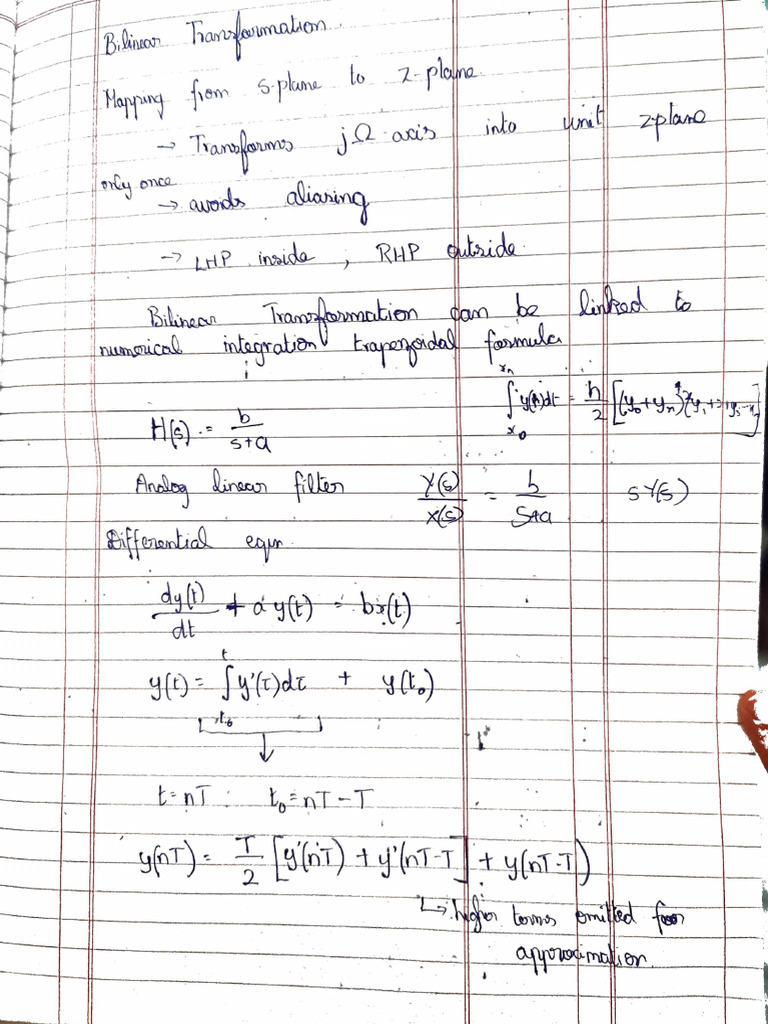 Bilinear Transformation.
Mapping from s-plane to z-plane
→ Transforms jΩ-axis into unit zplane
only once
→ avoids aliasing
→ LHP inside, RHP outside.
Bilinear Transformation can be linked to
numerical integration trapezoidal formula
H(s) = b/(s+a)
∫_{x_0}^{x_n} dt = h/2 [(y_0+y_n)
Analog linear filter Y(s)/X(s) = b/(s+a) sY(s)
Differential eqn.
dy(t)/dt + a y(t) = bx(t)
y(t) = ∫_{t_0}^{t} y'(τ)dτ + y(t_0)
↓
t=nT t_0=nT-T
y(nT) = T/2 [y'(nT) + y'(nT-T] + y(nT-T)
↳ higher terms omitted for
approximation.